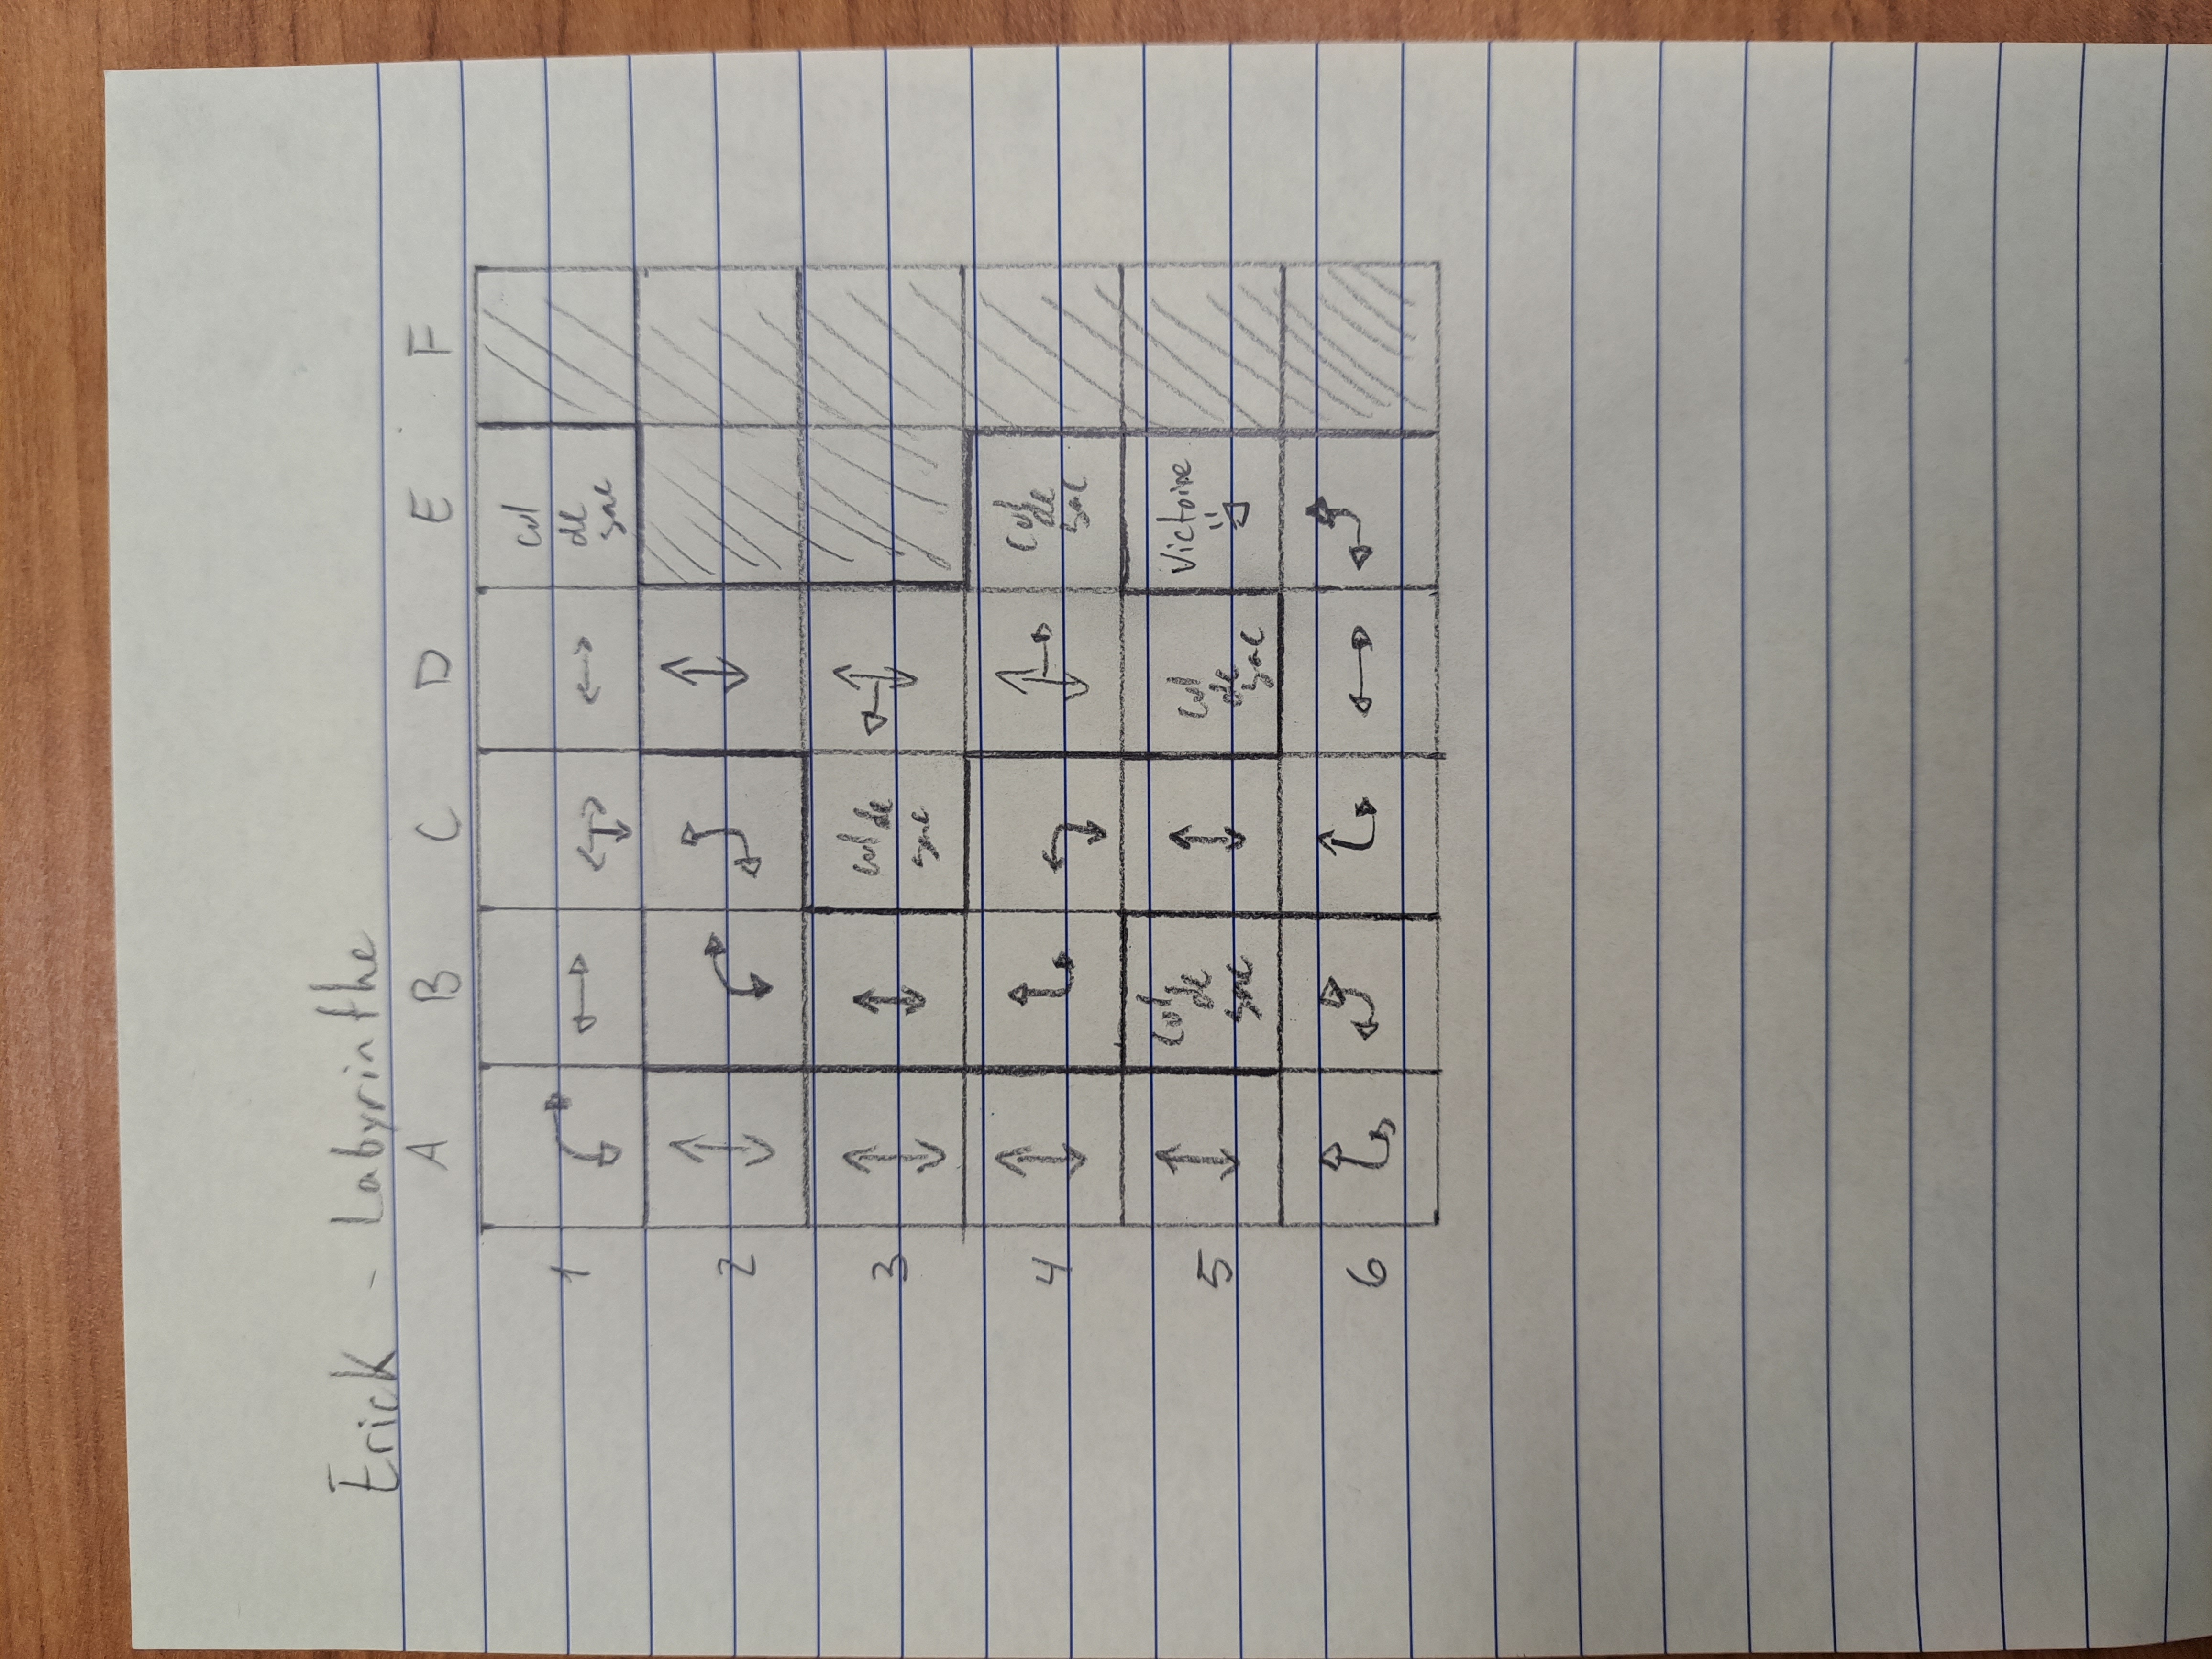 Erick - Labyrinthe
A B C D E F
1
cul
de
sac
2
3
cul de
sac
4
cul
de
sac
5
cul
de
sac
cul
de
sac
Victoire
6